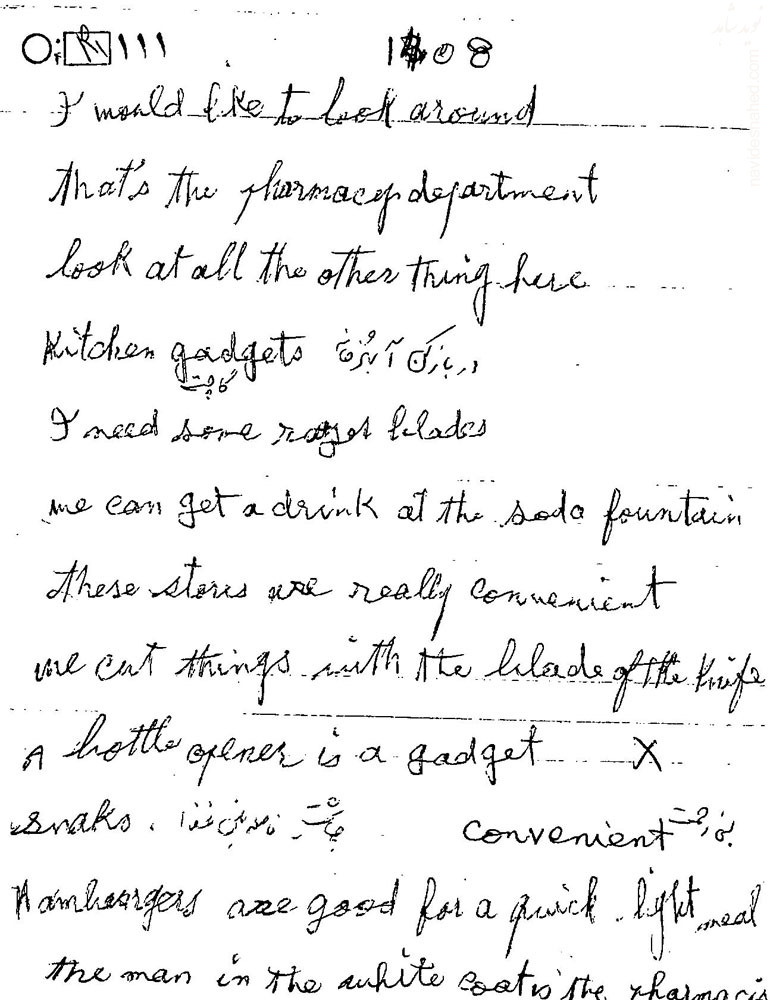 I would like to look around
that's the pharmacy department
look at all the other thing here
Kitchen gadgets
گاجت
I need some razer blades
we can get a drink at the soda fountain
these stores are really convenient
we cut things with the blade of the knife
A bottle opener is a gadget X
snaks. convenient
Hamburgers are good for a quick light meal
the man in the white coat is the pharmacis